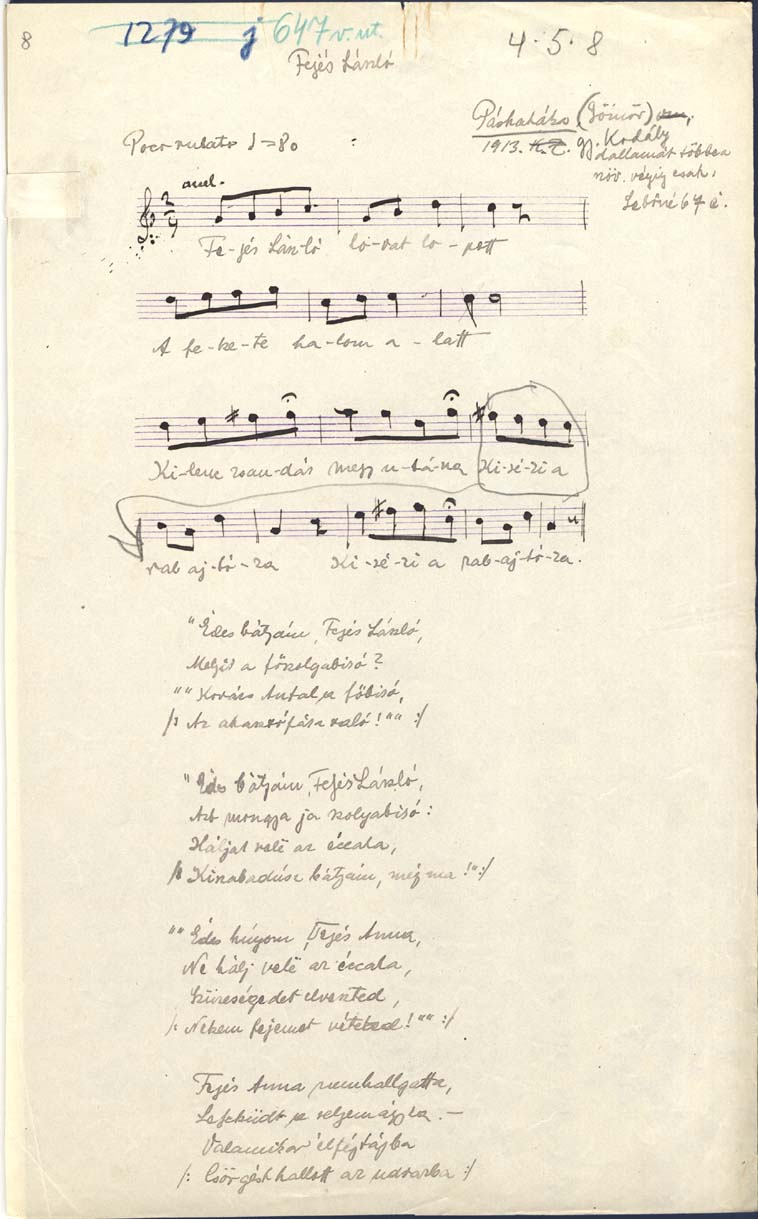 8
1279 j 647 v. ut.
4·5·8
Fejés László
Páskaháza (Gömör)
1913. gy. Kodály
dallamát többen
növ. végig csak:
Poco rubato ♩=80
Fe-jés Lász-ló lo-vat lo-pott
A fe-ke-te ha-lom a-latt
Ki-lenc zsan-dár megy u-tá-na Ki-sé-ri a
rab aj-tó-ra Ki-sé-ri a rab-aj-tó-ra.
"Édes bátyám, Fejés László,
Melyik a főszolgabíró?
""Kovács Antal a főbíró,
/: Az akasztófára való!"" :/
"Édes bátyám, Fejés László,
Azt mongya ja szolgabíró:
Háljak velë az éccaka,
/: Kiszabadúsz bátyám, még ma!" :/
""Édes húgom, Fejés Anna,
Ne hálj velë az éccaka,
Szüzességedet elveszted,
/: Nekem fejemet vëteted!"" :/
Fejés Anna nem hallgatta,
Lefeküdt a selyem ágyba. –
Valamikor éjfél tájba
/: Csörgést hallott az udvarba :/